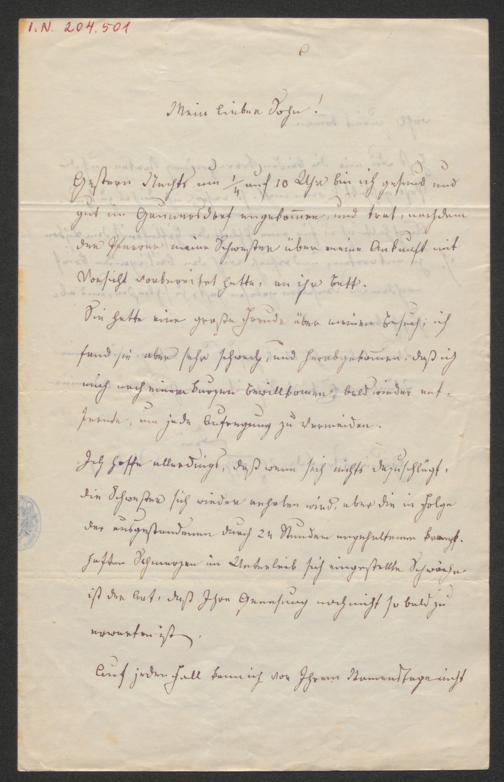 I.N. 204.501
Mein lieber Sohn!
Gestern Nachts um 1/4 auf 10 Uhr bin ich gesund und
gut in Gaunersdorf angekommen, und trat, nachdem
der Pfarrer meine Schwester über meine Ankunft mit
Vorsicht vorbereitet hatte, an ihr Bett.
Sie hatte eine große Freude über meinen Besuch; ich
fand sie aber sehr schwach, und herabgekommen, daß ich
mich nach einem kurzen Bewillkomen bald wieder ent-
fernte, um jede Aufregung zu vermeiden.
Ich hoffe allerdings, daß wenn sich nichts dazuschlägt,
die Schwester sich wieder erholen wird, aber die in Folge
der ausgestandenen durch 24 Stunden angehaltenen krampf-
haften Schmerzen im Unterleib sich eingestellte Schwäche
ist der Art, daß Ihre Genesung noch nicht so bald zu
erwarten ist.
Auf jeden Fall kann ich vor Ihrem Namenstage nicht